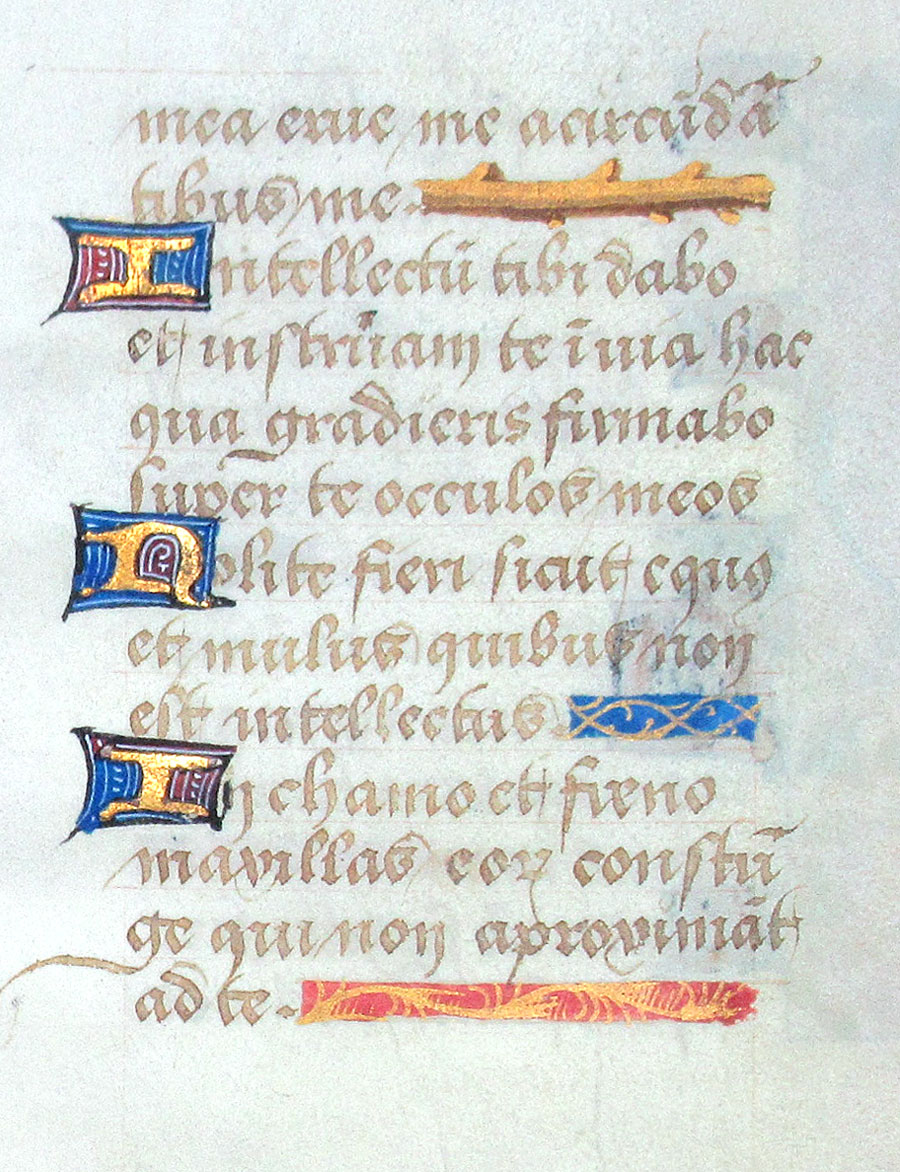 mea erue me acircūdā
tibus me.
Intellectū tibi dabo
et instruam te ī uia hac
qua gradieris firmabo
super te occulos meos
Nolite fieri sicut equus
et mulus quibus non
est intellectus
In chamo et freno
maxillas eoꝝ constrī
ge qui non aproximāt
ad te.